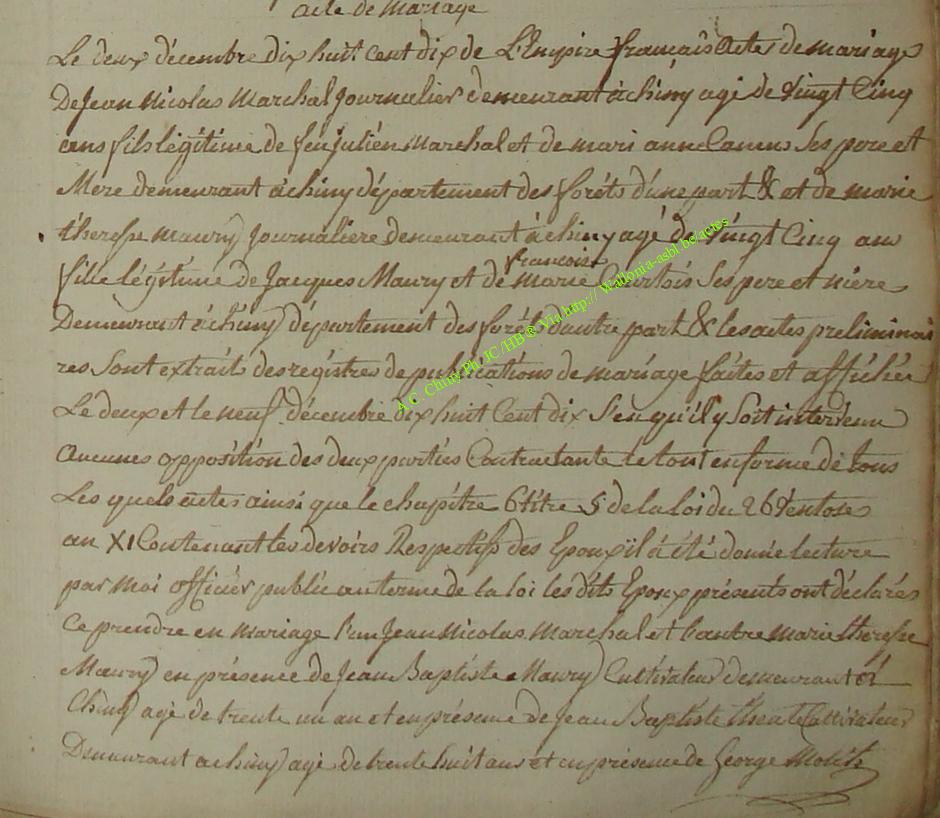 acte de mariage
Le deux décembre dix huit cent dix de L'Empire francais Actes de mariage
De Jean Nicolas Marchal Journalier demeurant à chiny agé de vingt Cinq
ans fils légitime de feu Julien Marchal et de mari anne Ses pere et
Mere demeurant à chiny département des foréts d'une part & et de marie
theresse Maury Journaliere demeurant à chiny agé de vingt Cinq ans
francoise
fille légitime de Jacques Maury et de marie Courtois Ses pere et mere
Demeurant à chiny département des forét d'autre part & les actes preliminai
res Sont extraits des régistres de publications de mariage faites et affichéés
Le deux et le neuf décembre dix huit Cent dix S'en qu'il y Soit intervenu
Aucunes oppósition des deux parties Contractante le tout en forme de tous
Les quels actes ainsi que le chapitre 6 titre 5 de la loi du 26 Ventose
an XI Contenant les devoirs Respectifs des Epoux il à été donné lecture
par moi officier public au terme de la loi les dits Epoux présents ont déclarés
Ce prendre en mariage l'un Jean Nicolas Marchal et l'autre marie theresse
Maury en présence de Jean Baptiste Maury Cultivateur demeurant à
Chiny agé de trente un an et en présence de Jean Baptiste Cultivateur
Demeurant a chiny agé de trente huit ans et en présence de George
A.C. Chiny Ph. JC /HB ® Via http:// Wallonia-asbl.be/actes